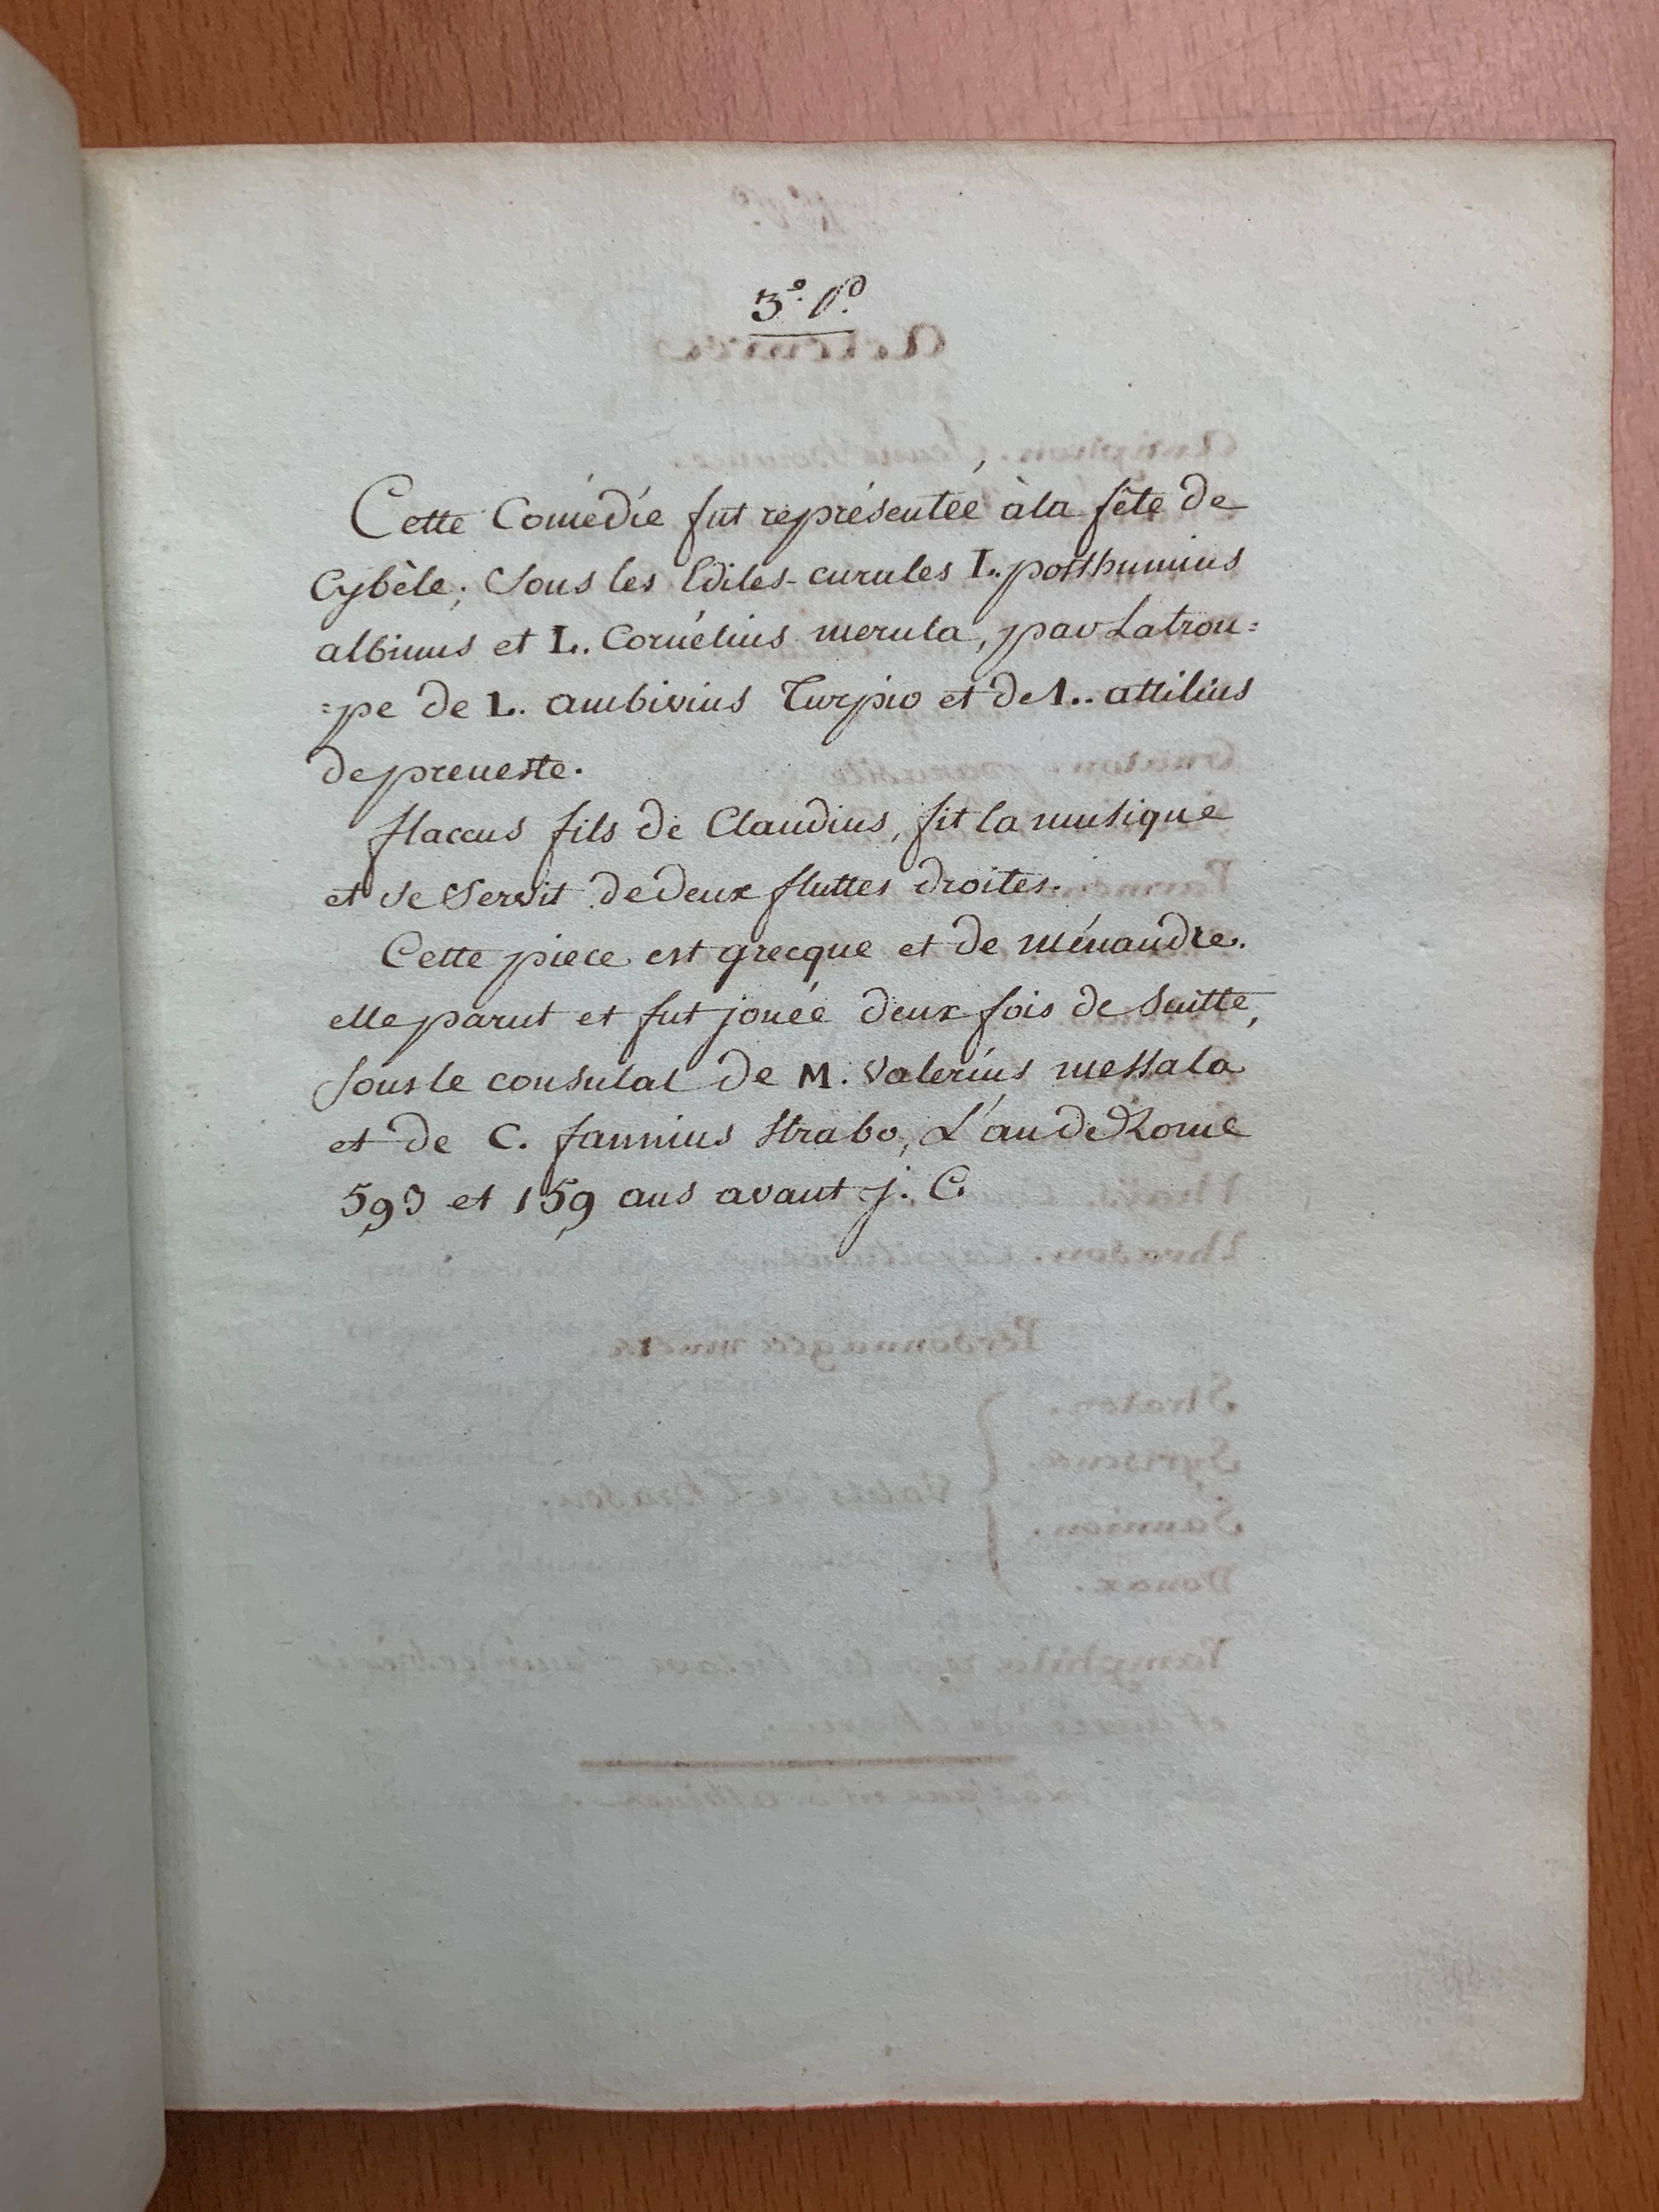 3.º f.º
Cette Comédie fut représentée à la fête de
Cybèle; Sous les Ediles-curules L. posthumius
albinus et L. Cornélius merula, par La trou=
=pe de L. ambivius Turpio et de L. attilius
de preneste.
flaccus fils de Claudius, fit la musique
et se Servit de deux fluttes droites.
Cette piece est grecque et de ménandre.
elle parut et fut jouée deux fois de Suitte,
Sous le consulat de M. Valerius messala
et de C. fannius strabo, L'an de Rome
593 et 159 ans avant j. C.